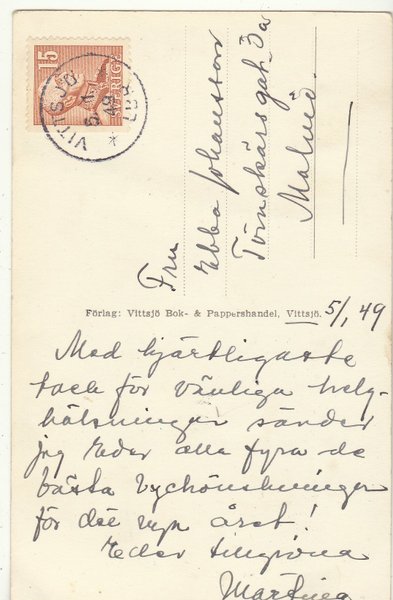 15
SVERIGE
VITTSJÖ
5 1
49
Fru
Ebba Johansson
Törnskärsgat. 3a
Malmö.
Förlag: Vittsjö Bok- & Pappershandel, Vittsjö.
5/1 49
Med hjärtligaste
tack för vänliga helg-
hälsningar sänder
jag Eder alla fyra de
bästa lyckönskningar
för det nya året!
Eder tillgivna
Martina